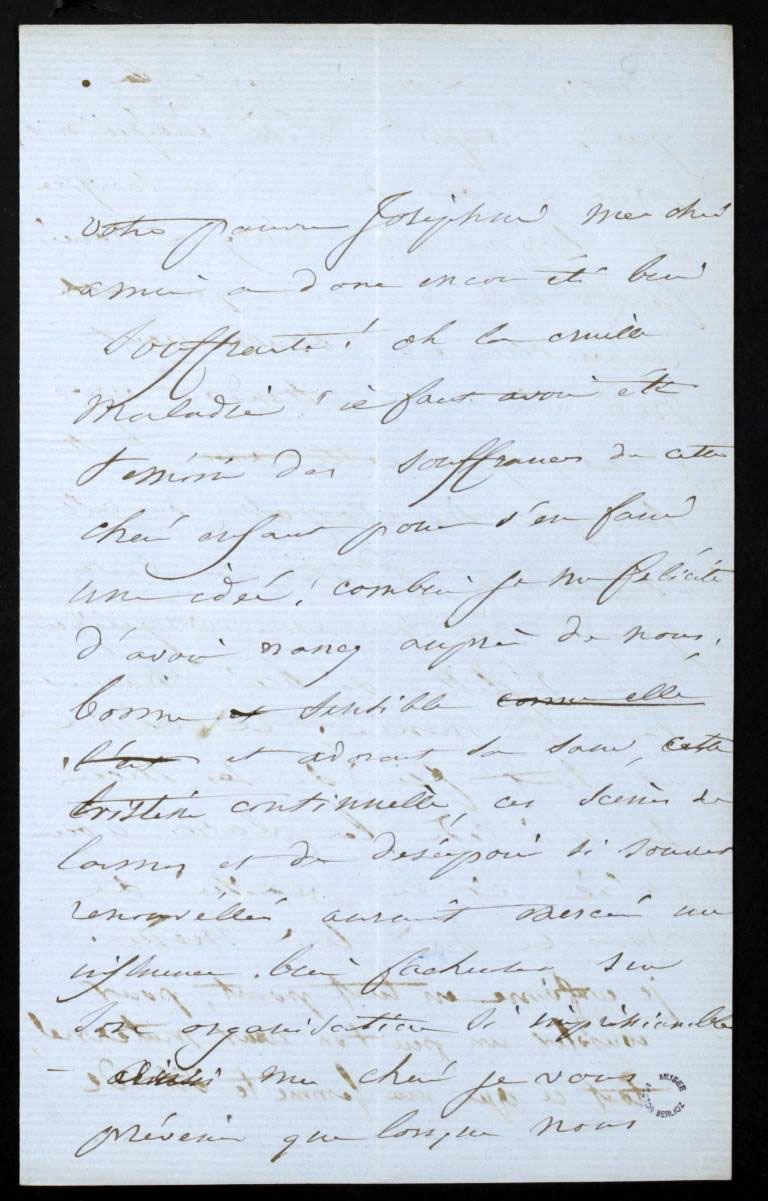 votre pauvre Joséphine ma chère
amie a donc encore été bien
souffrante ! oh la cruelle
Maladie ! il faut avoir été
témoin des souffrances de cette
chère enfant pour s'en faire
une idée ! combien je me félicite
d'avoir nancy auprès de nous,
bonne et sensible comme elle
l'est et adorant sa sœur, cette
tristesse continuelle, ces scènes de
larmes et de désespoir si souvent
renouvellées auraient exercé une
influence bien facheuse sur
son organisation si impressionnable
ma chère je vous
préviens que lorsque nous
MUSEE
HECTOR BERLIOZ